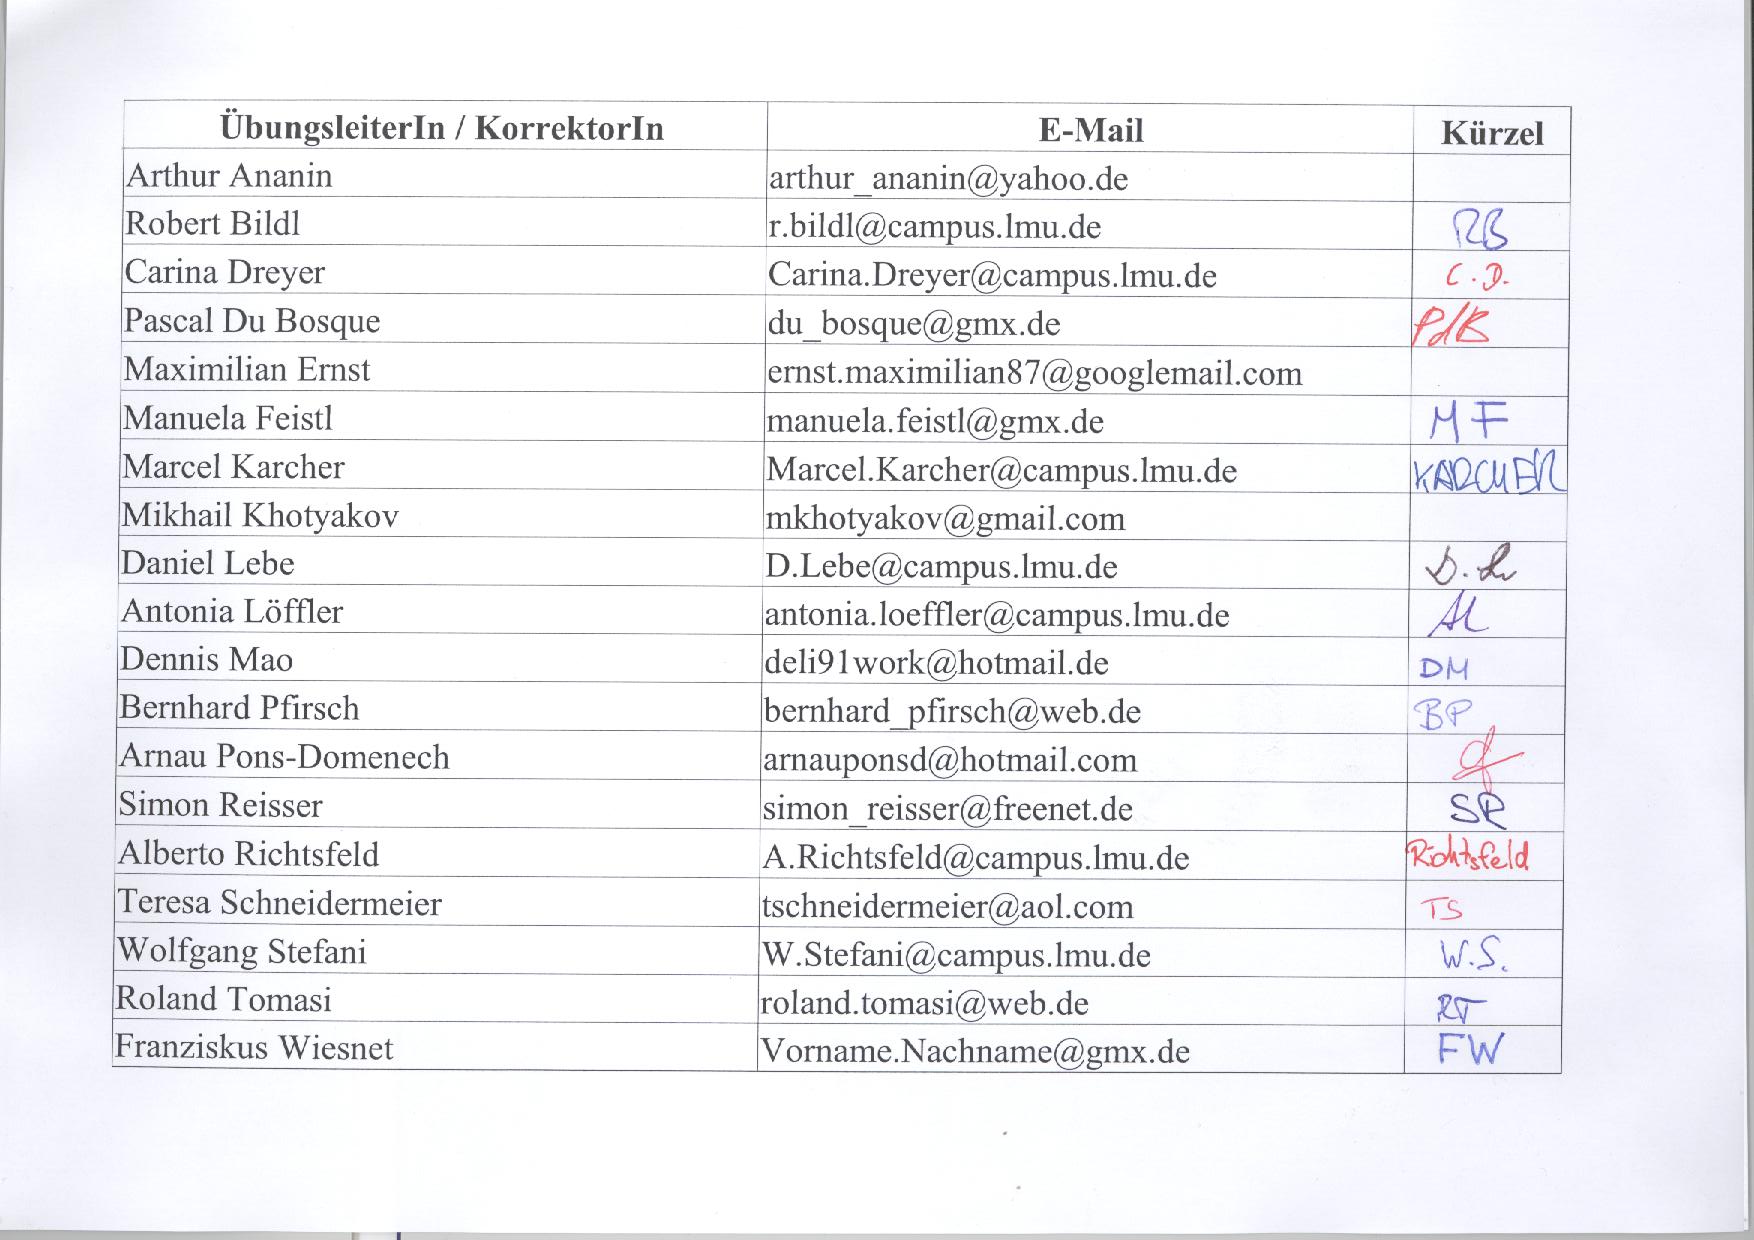 ÜbungsleiterIn / KorrektorIn E-Mail Kürzel
Arthur Ananin arthur_ananin@yahoo.de
Robert Bildl r.bildl@campus.lmu.de RB
Carina Dreyer Carina.Dreyer@campus.lmu.de C.D.
Pascal Du Bosque du_bosque@gmx.de PdB
Maximilian Ernst ernst.maximilian87@googlemail.com
Manuela Feistl manuela.feistl@gmx.de MF
Marcel Karcher Marcel.Karcher@campus.lmu.de KARCHER
Mikhail Khotyakov mkhotyakov@gmail.com
Daniel Lebe D.Lebe@campus.lmu.de D.L
Antonia Löffler antonia.loeffler@campus.lmu.de AL
Dennis Mao deli91work@hotmail.de DM
Bernhard Pfirsch bernhard_pfirsch@web.de BP
Arnau Pons-Domenech arnauponsd@hotmail.com
Simon Reisser simon_reisser@freenet.de SR
Alberto Richtsfeld A.Richtsfeld@campus.lmu.de Richtsfeld
Teresa Schneidermeier tschneidermeier@aol.com TS
Wolfgang Stefani W.Stefani@campus.lmu.de W.S.
Roland Tomasi roland.tomasi@web.de RT
Franziskus Wiesnet Vorname.Nachname@gmx.de FW